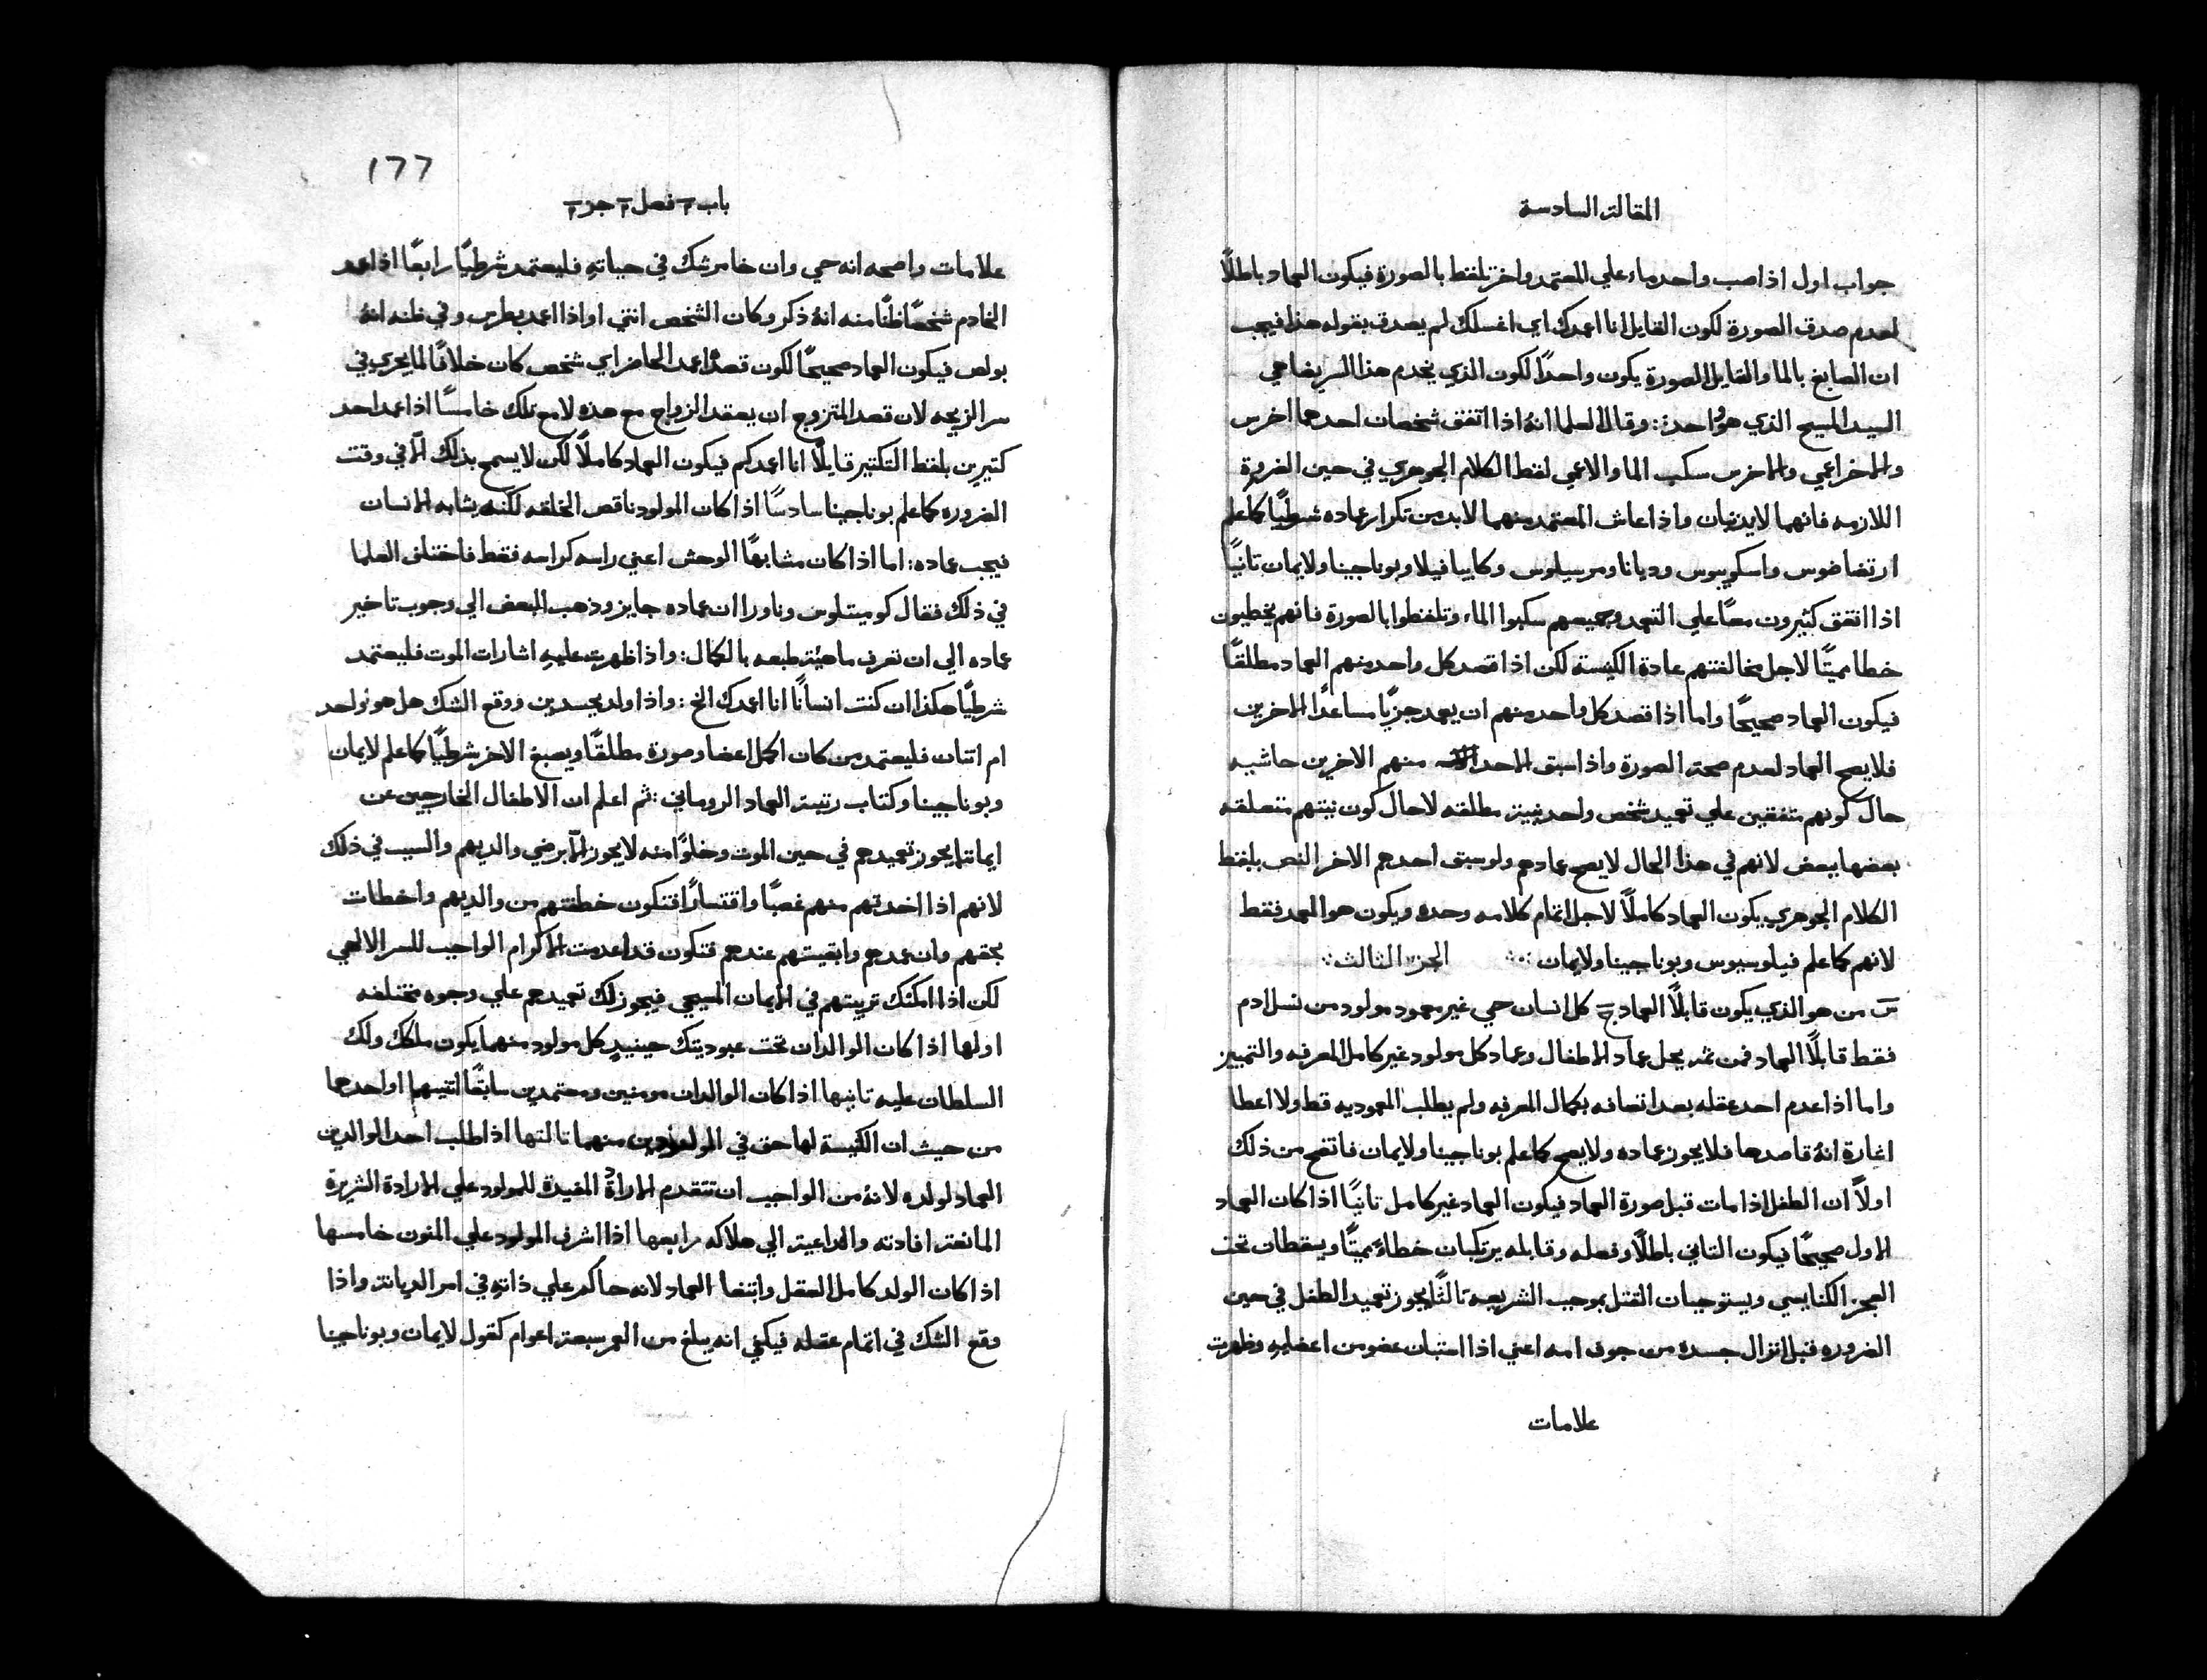 المقالة السادسة
جواب اول اذا صب واحد ماء علي المعتمد واخر تلفظ بالصورة فيكون العماد باطلًا
لعدم صدق الصورة لكون القايل انا اعمدك اي اغسلك لم يصدق بقوله هذا فيجب
ان الصابغ بالما والقايل الصورة يكون واحدًا لكون الذي يخدم هذا السر يضاهي
السيد المسيح الذي هو واحد: وقال العلما انهُ اذا اتفق شخصان احدهما اخرس
والاخر اعمي والاخرس سكب الما والاعمي لفظ الكلام الجوهري في حين الضرورة
اللازمه فانهما لا يدنيان واذا عاش المعتمد منهما لابد من تكرار عماده شرطيًا كما علم
ارتضاضوس واسكوبوس وديانا ومرسيلوس وكابيا فيلا وبوناجينا ولايمان ثانيًا
اذا اتفق كثيرون معًا علي التعمد وجميعهم سكبوا الماء وتلفظوا بالصورة فانهم يخطيون
خطا مميتًا لاجل مخالفتهم عادة الكنيسة لكن اذا قصد كل واحد منهم العماد مطلقًا
فيكون العماد صحيحًا واما اذا قصد كل واحد منهم ان يعمد جزيًا مساعدًا الاخرين
فلا يصح العماد لعدم صحة الصورة واذا سبق الاحد منهم الاخرين حاشيه
حال كونهم متفقين علي تعميد شخص واحد بنية مطلقه لا حال كون نيتهم متعلقه
بعضها ببعض لانهم في هذا الحال لا يصح عمادهم ولو سبق احدهم الاخر النص بلفظ
الكلام الجوهري يكون العماد كاملًا لاجل اتمام كلامه وحده ويكون هو المعمد فقط
لانهم كما علم فيلوسيوس وبوناجينا ولايمان ∴ الجزء الثالث ∴
س من هو الذي يكون قابلًا العماد ج كل انسان حي غير معمود مولود من نسل ادم
فقط قابلًا العماد فمن ثم يحل عماد الاطفال وعماد كل مولود غير كامل المعرفه والتمييز
واما اذا عدم احد عقله بعد اتصافه بكمال المعرفه ولم يطلب المعموديه قط ولا اعطا
اشارة انهُ قاصدها فلا يجوز عماده ولا يصح كما علم بوناجينا ولايمان فاتضح من ذلك
اولًا ان الطفل اذا مات قبل صورة العماد فيكون العماد غير كامل ثانيًا اذا كان العماد
الاول صحيحًا فيكون الثاني باطلًا وفعله وقابله يرتكبان خطاءً مميتًا ويسقطان تحت
العجز الكنايسي ويستوجبان القتل بموجب الشريعه ثالثًا يجوز تعميد الطفل في حين
الضروره قبل انزال جسده من جوف امه اعني اذا استبان عضو من اعضايهِ وظهرت
علامات
١٦٦
باب ٢ فصل ٢ جز ٣
علامات واضحه انه حي وان خامر شك في حياتهِ فليعتمد شرطيًا رابعًا اذا عمد
الخادم شخصًا ظنًا منه انهُ ذكر وكان الشخص انثي او اذا اعمد بطرس وفي ظنه انهُ
بولص فيكون العماد صحيحًا لكون قصده اعمد الحاضر اي شخص كان خلافًا لما يجري في
سر الزيجه لان قصد المتزوج ان يعقد الزواج مع هذه لا مع تلك خامسًا اذا عمد احد
كتيرين بلفظ التكثير قايلًا انا اعمدكم فيكون العماد كاملًا لكن لا يسمح بذلك الا في وقت
الضروره كما علم بوناجينا سادسًا اذا كان المولود ناقص الخلقه لكنه يشابه الانسان
فيجب عماده: اما اذا كان مشابهًا الوحش اعني راسه كراسه فقط فاختلف العلما
في ذلك فقال كوميتلوس وناورا ان عماده جايز وذهب البعض الي وجوب تاخير
عماده الي ان تعرف ماهية طبعه بالكمال: واذا ظهرت عليهِ اشارات الموت فليعتمد
شرطيًا هكذا ان كنت انسانًا انا اعمدك الخ: واذا ولد بجسدين ووقع الشك هل هو واحد
ام اثنان فليعتمد من كان اكمل اعضا وصورة مطلقًا ويصبغ الاخر شرطيًا كما علم لايمان
وبوناجينا وكتاب رتبة العماد الروماني: ثم اعلم ان الاطفال الخارجين عن
ايماننا يجوز تعميدهم في حين الموت وخلوًا منه لا يجوز الا برضي والديهم والسبب في ذلك
لانهم اذا اخدتهم منهم غصبًا واقتسارًا فتكون خطفتهم من والديهم واخطات
بحقهم وان عمدهم وابقيتهم عندهم فتكون قد اعدمت الاكرام الواجب للسر الالهي
لكن اذا امكنك تربيتهم في الايمان المسيحي فيجوز لك تعميدهم علي وجوه مختلفه
اولها اذا كان الوالدان تحت عبوديتك حينيدٍ كل مولود منهما يكون ملكك ولك
السلطان عليه ثانيها اذا كان الوالدان مومنين ومعتمدين سابقًا اثنيهما او احدهما
من حيث ان الكنيسة لها حق في المولودين منهما ثالثها اذا طلب احد الوالدين
العماد لولده لانهُ من الواجب ان تتقدم الارادة المفيدة للمولود علي الارادة الشريرة
المانعة افادته والداعية الي هلاكه رابعها اذا اشرف المولود علي المنون خامسها
اذا كان الولد كامل العقل وابتغا العماد لانه حاكم علي ذاتهِ في امر الديانة واذا
وقع الشك في اتمام عقله فيكفي انه يبلغ من العمر سبعة اعوام كقول لايمان وبوناجينا